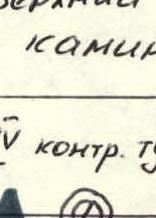 верхний
камин
IV контр. ту